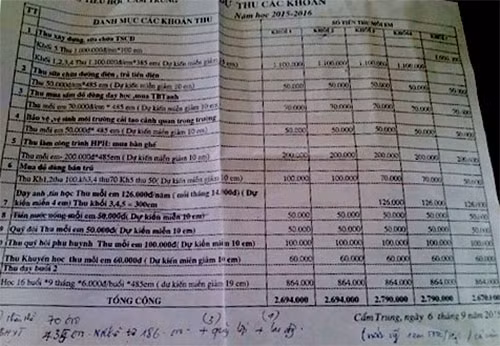 TIỂU HỌC CẨM TRUNG
DỰ THU CÁC KHOẢN
Năm học 2015-2016
TT DANH MỤC CÁC KHOẢN THU SỐ TIỀN THU MỖI EM
KHỐI 1 KHỐI 2 KHỐI 3 KHỐI 4
1 Thu xây dựng, sửa chữa TSCĐ
Khối 5 Thu 1.000.000đ/em*100 em
Khối 1,2,3,4 Thu 1.100.000đ/em*385 em ( Dự kiến miễn giảm em) 1.100.000 1.100.000 1.100.000 1.100.000
2 Thu sửa chữa đường điện, trả tiền điện
Thu 50.000đ/em*485 em ( Dự kiến miễn giảm 10 em) 50.000 50.000 50.000 50.000
3 Thu mua sắm đồ dùng dạy học ,mua TBTanh
Thu mỗi em 70.000đ/em * 485 em ( Dự kiến miễn giảm 10 em) 70.000 70.000 70.000 70.000
4 Bảo vệ ,vệ sinh môi trường cải tạo cảnh quan trong trường
Thu mỗi em 50.000đ* 485 em ( Dự kiến miễn giảm 10 em) 50.000 50.000 50.000 50.000
5 Thu làm công trình HPH: mua bàn ghế
Thu mỗi em- 200.000đ*485em ( Dự kiến miễn giảm 10 em) 200.000 200.000 200.000 200.000
6 Mua đồ dùng bán trú
Thu Kh1,2thu 100.kh3,4 thu70 Kh5 thu 50( Dự kiến miễn giảm 10 em) 100.000 100.000 70.000 70.000
7 Dạy anh ,tin học Thu mỗi em 126.000đ/năm ( mỗi tháng 14.000đ) ( Dự kiến miễn 4 em) Thu khối 3,4,5 = 300em 126.000 126.000
8 Tiền nước uống mỗi em 50.000đ( Dự kiến miễn giảm 10 em) 50.000 50.000 50.000 50.000
9 Quỹ đội Thu mỗi em 50.000đ( Dự kiến miễn giảm 10 em) 50.000 50.000 50.000 50.000
Thu quỹ hội phụ huynh Thu mỗi em 100.000đ( Dự kiến miễn giảm 10 em) 100.000 100.000 100.000 100.000
Thu Khuyến học thu mỗi em 60.000đ ( Dự kiến miễn giảm 10 em) 60.000 60.000 60.000 60.000
Thu dạy buổi 2
Học 16 buổi *9 tháng *6.000đ/buổi *485em ( dự kiến miễn giảm 19 em) 864.000 864.000 864.000 864.000
TỔNG CỘNG 2.694.000 2.694.000 2.790.000 2.790.000
Cẩm Trung, ngày 6 tháng 9 năm 2015